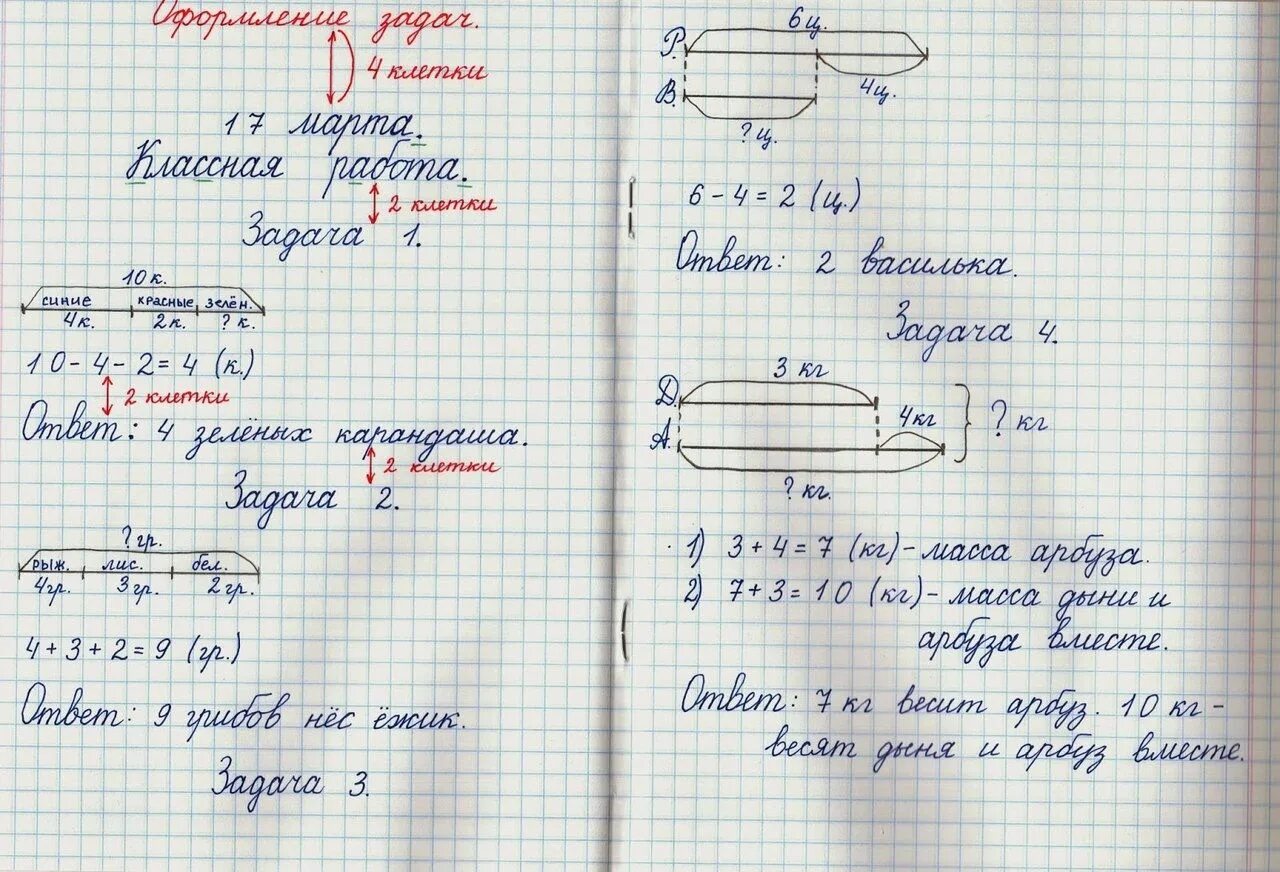 Оформление задач.
4 клетки
17 марта.
Классная работа.
2 клетки
Задача 1.
10 к.
синие красные зелён.
4к. 2к. ? к.
10 - 4 - 2 = 4 (к.)
2 клетки
Ответ: 4 зелёных карандаша.
2 клетки
Задача 2.
? гр.
рыж. лис. бел.
4гр. 3гр. 2гр.
4 + 3 + 2 = 9 (гр.)
Ответ: 9 грибов нёс ёжик.
Задача 3.
6ц.
Р.
4ц.
В.
? ц.
6 - 4 = 2 (ц.)
Ответ: 2 василька.
Задача 4.
3 кг
Д.
4кг
? кг
А.
? кг.
1) 3 + 4 = 7 (кг) - масса арбуза.
2) 7 + 3 = 10 (кг) - масса дыни и
арбуза вместе.
Ответ: 7 кг весит арбуз. 10 кг -
весят дыня и арбуз вместе.